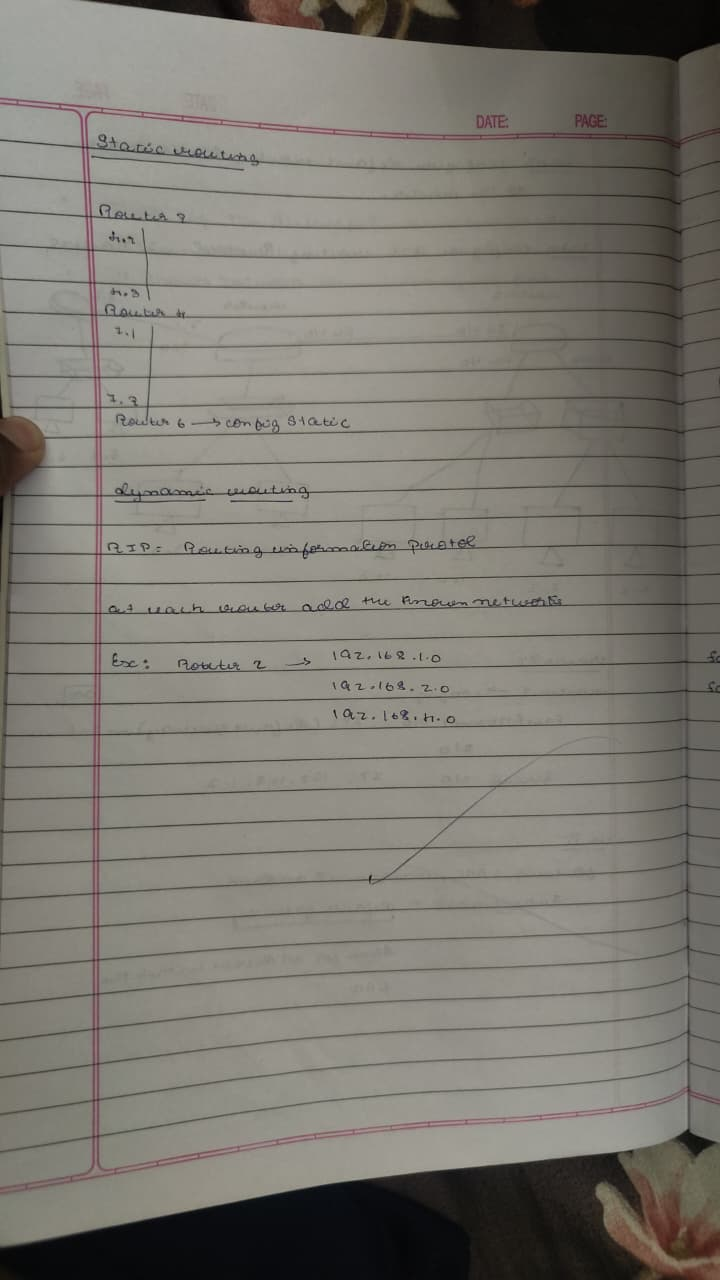 DATE: PAGE:
Static routing
Router
Router 4
Router 6 → config static
dynamic routing
RIP = Routing information Protol
at each router add the known networks
Ex: Router 2 → 192.168.1.0
192.168.2.0
192.168.4.0